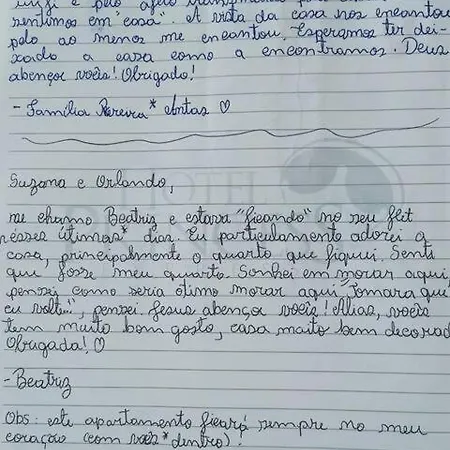 e pelo
sentimos em "casa". A vista da casa nos encantou
pelo ao menos me encantou. Esperamos ter dei-
xado a casa como a encontramos. Deus
abençoe vocês! Obrigado!
- Família Pereira* 
Suzana e Orlando,
me chamo Beatriz e estava "ficando" no seu flet
nesses últimos* dias. Eu particularmente adorei a
casa, principalmente o quarto que fiquei. Senti
que fosse meu quarto. Sonhei em morar aqui,
pensei como seria ótimo morar aqui "Tomara que
eu volte...", pensei. Jesus abençoe vocês! Aliás, vocês
tem muito bom gosto, casa muito bem decorad
Obrigada! ♡
- Beatriz
Obs: este apartamento ficará sempre no meu
coração (com vocês* dentro)!
HOTEL